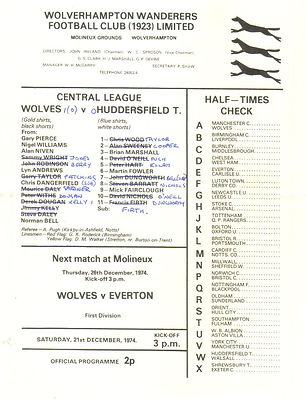 WOLVERHAMPTON WANDERERS
FOOTBALL CLUB (1923) LIMITED
MOLINEUX GROUNDS WOLVERHAMPTON
DIRECTORS: JOHN IRELAND (Chairman) W. C. SPROSON (Vice-Chairman)
G. S. CLARK H. J. MARSHALL G. P. DEVINE
MANAGER: W. H. McGARRY SECRETARY P. SHAW
TELEPHONE
CENTRAL LEAGUE
WOLVES 1 (0) v 0 HUDDERSFIELD T.
(Gold shirts, black shorts) (Blue shirts, white shorts)
From: From:
Gary PIERCE 1 Chris WOOD TAYLOR
Nigel WILLIAMS 2 Alan SWEENEY COOPER
Alan NIVEN 3 Brian MARSHALL
Sammy WRIGHT JONES 4 David O'NEILL PUGH
John ROBINSON BERRY 5 Peter HART
Lyn ANDREWS 6 Martin FOWLER
Gerry TAYLOR 7 John DUNGWORTH
Chris DANGERFIELD 8 Steven BARRATT NICHOLS
Maurice DALY 9 Phil SUMMERILL
Peter WITHE DOUGAN 10 David NICHOLS O'NEILL
Derek DOUGAN KELLY 11 Francis FIRTH DUNGWORTH
Jimmy KELLY Sub:
Steve DALEY FIRTH.
Norman BELL
Referee - A. Pugh (Kirkby-in-Ashfield, Notts)
Linesmen - Red Flag: G. K. Roderick (Birmingham)
Yellow Flag: D. M. Walker (Stretton, nr. Burton-on-Trent)
Next match at Molineux
Thursday, 26th December, 1974.
Kick-off 3 p.m.
WOLVES v EVERTON
First Division
SATURDAY, 21st DECEMBER, 1974.
KICK-OFF
3 p.m.
OFFICIAL PROGRAMME 2p
HALF-TIMES
CHECK
A MANCHESTER C.
WOLVES
B BIRMINGHAM C.
LIVERPOOL
C BURNLEY
MIDDLESBROUGH
D CHELSEA
WEST HAM
E EVERTON
CARLISLE U.
F LUTON TOWN
DERBY CO.
G NEWCASTLE U.
LEEDS U.
H STOKE C.
ARSENAL
J TOTTENHAM
Q. P. RANGERS
K BOLTON.
OXFORD U.
L BRISTOL R.
PORTSMOUTH
M CARDIFF C.
NOTTS. CO.
N MILLWALL
SHEFFIELD W.
P NORWICH C.
BRISTOL C.
Q NOTTINGHAM F.
BLACKPOOL
R OLDHAM
SUNDERLAND
S ORIENT
HULL CITY
T SOUTHAMPTON
FULHAM
U W. B. ALBION
ASTON VILLA
V YORK CITY
MANCHESTER U.
W HUDDERSFIELD T.
WALSALL
X SHREWSBURY T.
EXETER C.